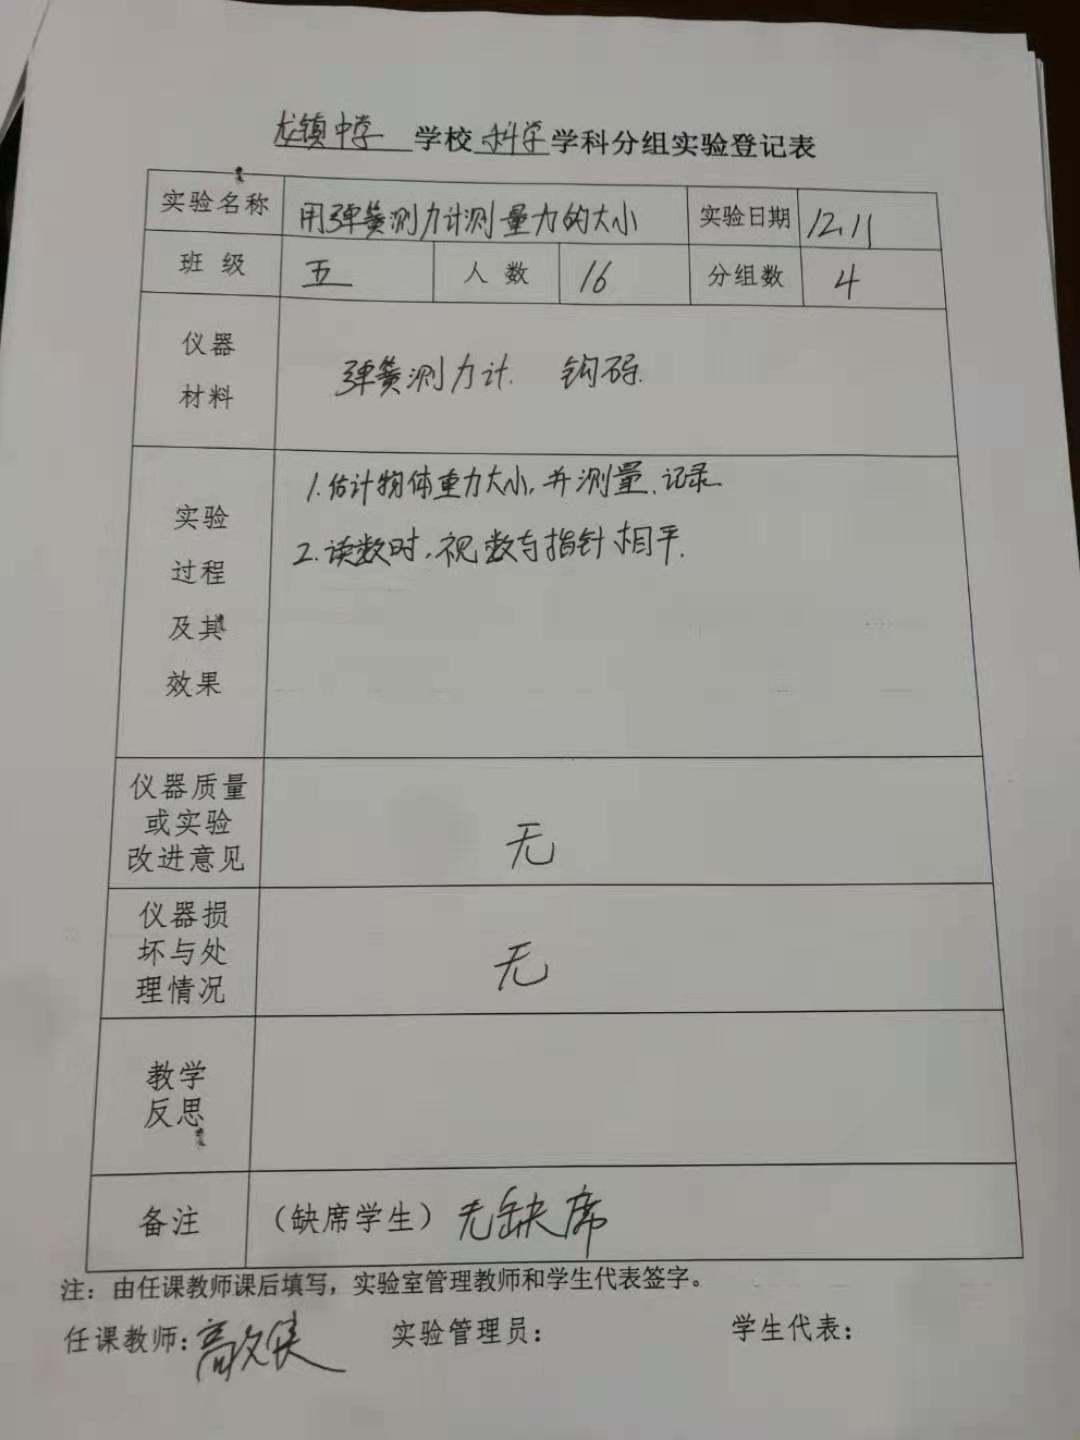 龙镇中学 学校 科学 学科分组实验登记表
实验名称 用弹簧测力计测量力的大小 实验日期 12.11
班级 五 人数 16 分组数 4
仪器
材料
弹簧测力计. 钩码.
实验
过程
及其
效果
1.估计物体重力大小,并测量、记录
2.读数时,视数与指针相平.
仪器质量
或实验
改进意见
无
仪器损
坏与处
理情况
无
教学
反思
备注 （缺席学生）无缺席
注：由任课教师课后填写，实验室管理教师和学生代表签字。
任课教师：高文 实验管理员： 学生代表：